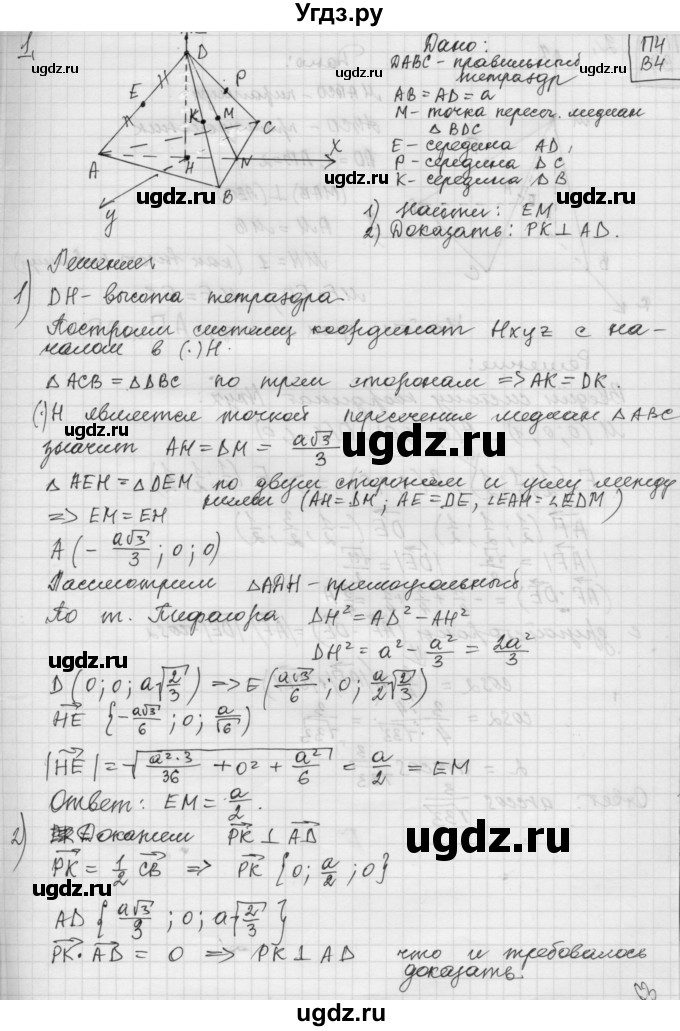 Угдз.ру
1
Дано:
П4
В4
DABC - правильный
тетраэдр
AB = AD = a
M - точка пересеч. медиан
△ BDC
E - середина AD,
P - середина DC
K - середина DB
1) Найти: EM
2) Доказать: PK ⊥ AD.
D
E
P
K
M
C
A
H
N
X
B
y
ugdz.ru
ugdz.ru
ugdz.ru
Решение:
1) DH - высота тетраэдра.
Построим систему координат Hxyz с на-
чалом в (·) H.
△ ACB = △ DBC по трем сторонам => AK = DK.
(·) H является точкой пересечения медиан △ ABC
значит AH = DM = a√3/3
ugdz.ru
△ AEH = △ DEM по двум сторонам и углу между
ними (AH = DM; AE = DE, ∠EAH = ∠EDM)
=> EM = EH
A (- a√3/3 ; 0 ; 0)
ugdz.ru
Рассмотрим △ADH - прямоугольный
По т. Пифагора DH² = AD² - AH²
DH² = a² - a²/3 = 2a²/3
ugdz.ru
D (0; 0; a√(2/3)) => E (a√3/6 ; 0; a/2 √(2/3))
HE {- a√3/6 ; 0; a/√6}
|HE| = √(a²·3/36 + 0² + a²/6) = a/2 = EM
Ответ: EM = a/2.
ugdz.ru
2) Докажем PK ⊥ AD
PK = 1/2 CB => PK {0; a/2 ; 0}
AD {a√3/3 ; 0; a√(2/3)}
ugdz.ru
PK · AD = 0 => PK ⊥ AD что и требовалось
доказать.
ugdz.ru